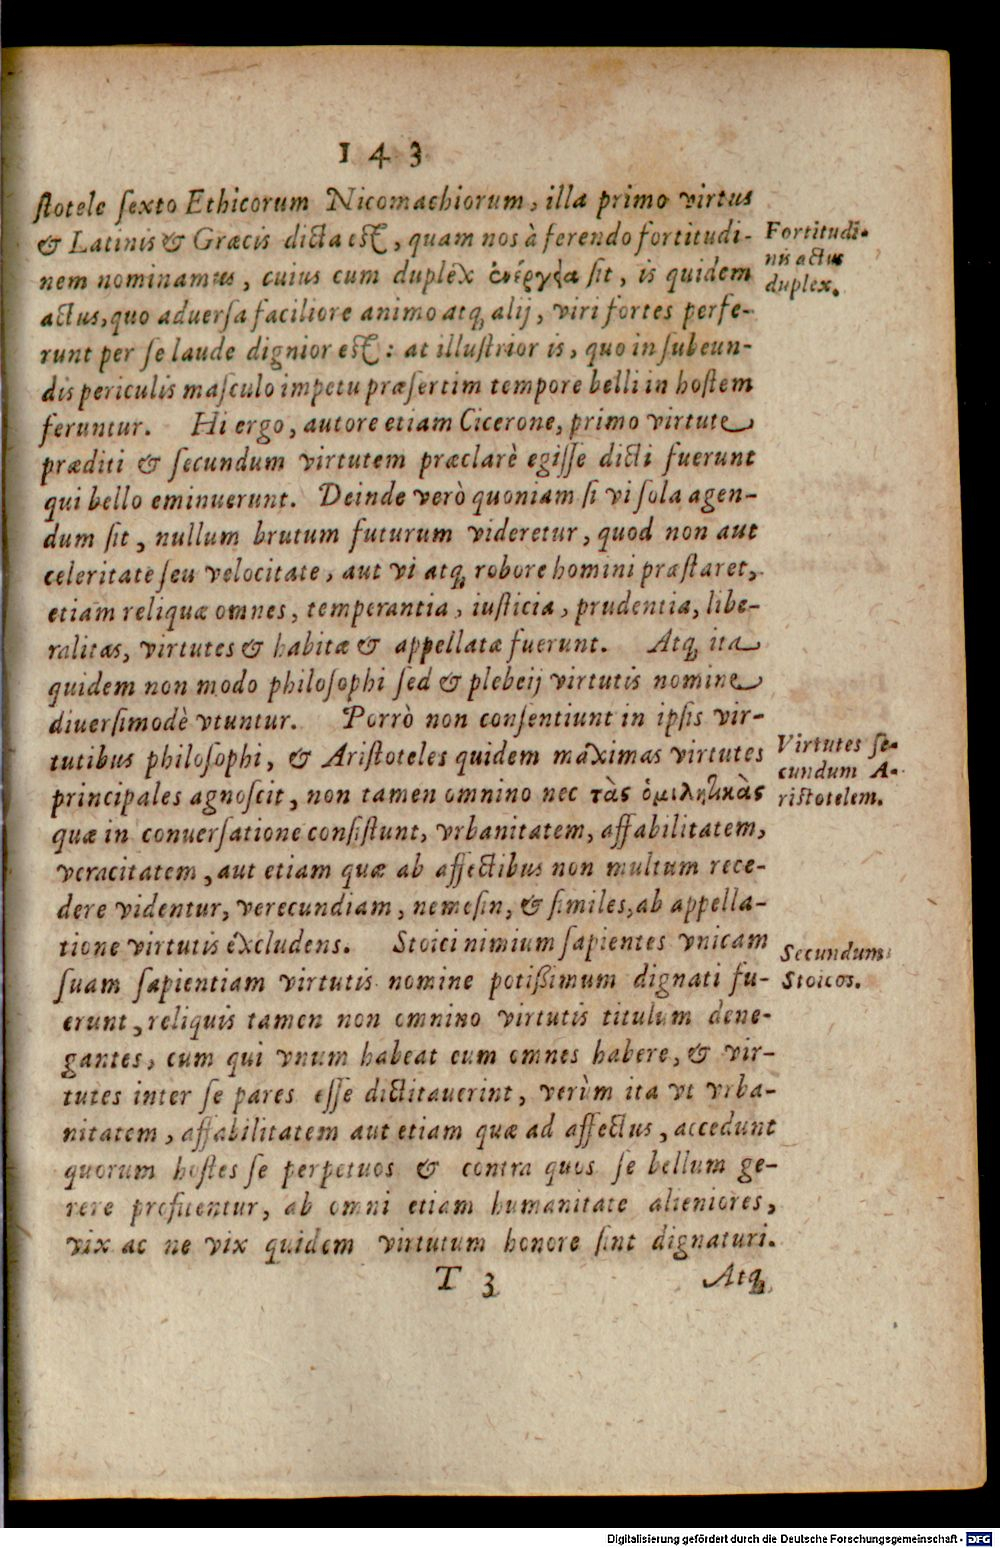 143
ſtotele ſexto Ethicorum Nicomachiorum, illa primo virtus
& Latinis & Græcis dicta eſt, quam nos à ferendo fortitudi-
nem nominamus, cuius cum duplex ἐνέργεια ſit, is quidem
actus, quo aduerſa faciliore animo atq; alij, viri fortes perfe-
runt per ſe laude dignior eſt: at illuſtrior is, quo in ſubeun-
dis periculis maſculo impetu præſertim tempore belli in hoſtem
feruntur. Hi ergo, autore etiam Cicerone, primo virtute
præditi & ſecundum virtutem præclarè egiſſe dicti fuerunt
qui bello eminuerunt. Deinde verò quoniam ſi vi ſola agen-
dum ſit, nullum brutum futurum videretur, quod non aut
celeritate ſeu velocitate, aut vi atq; robore homini præſtaret,
etiam reliquæ omnes, temperantia, iuſticia, prudentia, libe-
ralitas, virtutes & habitæ & appellatæ fuerunt. Atq; ita
quidem non modo philoſophi ſed & plebeij virtutis nomine
diuerſimodè vtuntur. Porrò non conſentiunt in ipſis vir-
tutibus philoſophi, & Ariſtoteles quidem maximas virtutes
principales agnoſcit, non tamen omnino nec τὰς ὁμιλητικὰς
quæ in conuerſatione conſiſtunt, vrbanitatem, affabilitatem,
veracitatem, aut etiam quæ ab affectibus non multum rece-
dere videntur, verecundiam, nemeſin, & ſimiles, ab appella-
tione virtutis excludens. Stoici nimium ſapientes vnicam
ſuam ſapientiam virtutis nomine potißimum dignati fu-
erunt, reliquis tamen non omnino virtutis titulum dene-
gantes, cum qui vnum habeat eum omnes habere, & vir-
tutes inter ſe pares eſſe dictitauerint, verùm ita vt vrba-
nitatem, affabilitatem aut etiam quæ ad affectus, accedunt
quorum hoſtes ſe perpetuos & contra quos ſe bellum ge-
rere profitentur, ab omni etiam humanitate alieniores,
vix ac ne vix quidem virtutum honore ſint dignaturi.
T 3 Atq;
Fortitudi-
nis actus
duplex.
Virtutes ſe-
cundum A-
riſtotelem.
Secundum
Stoicos.
Digitalisierung gefördert durch die Deutsche Forschungsgemeinschaft - DFG